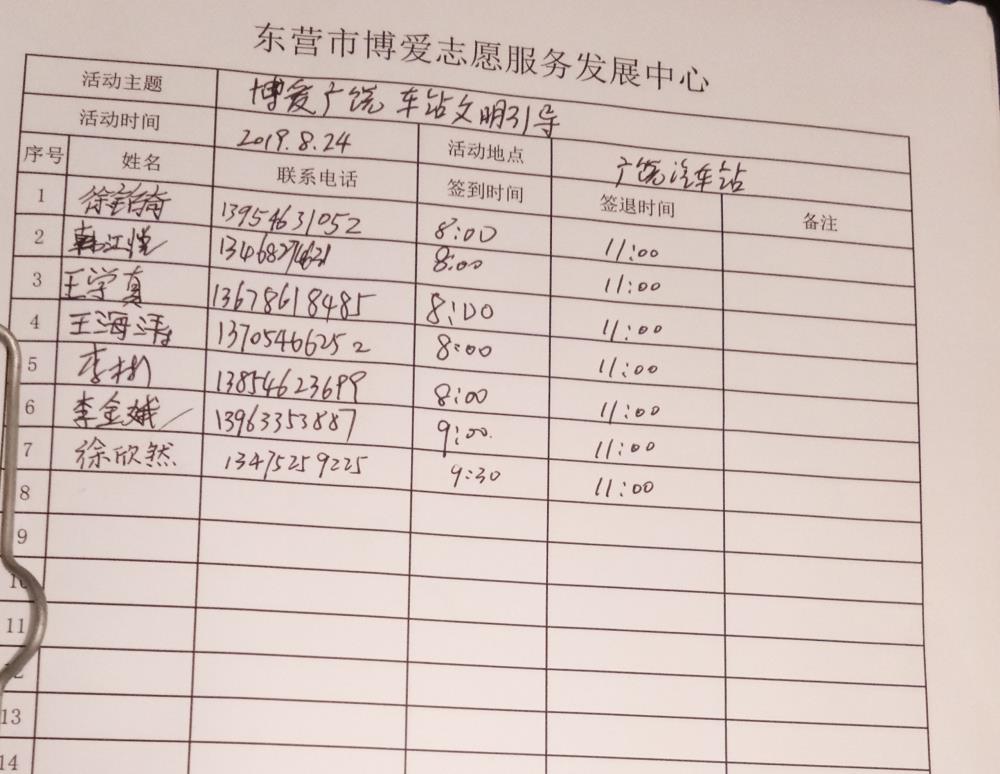 东营市博爱志愿服务发展中心
活动主题 博爱广饶 车站文明引导
活动时间 2019.8.24 活动地点 广饶汽车站
序号 姓名 联系电话 签到时间 签退时间 备注
1 13954631052 8:00 11:00
2 韩江悦 13468274631 8:00 11:00
3 王学真 13678618485 8:00 11:00
4 王海涛 13705466252 8:00 11:00
5 李彬 13854623699 8:00 11:00
6 李金娥 13963353887 9:00 11:00
7 徐欣然 13475259225 9:30 11:00
8
9
10
11
13
14